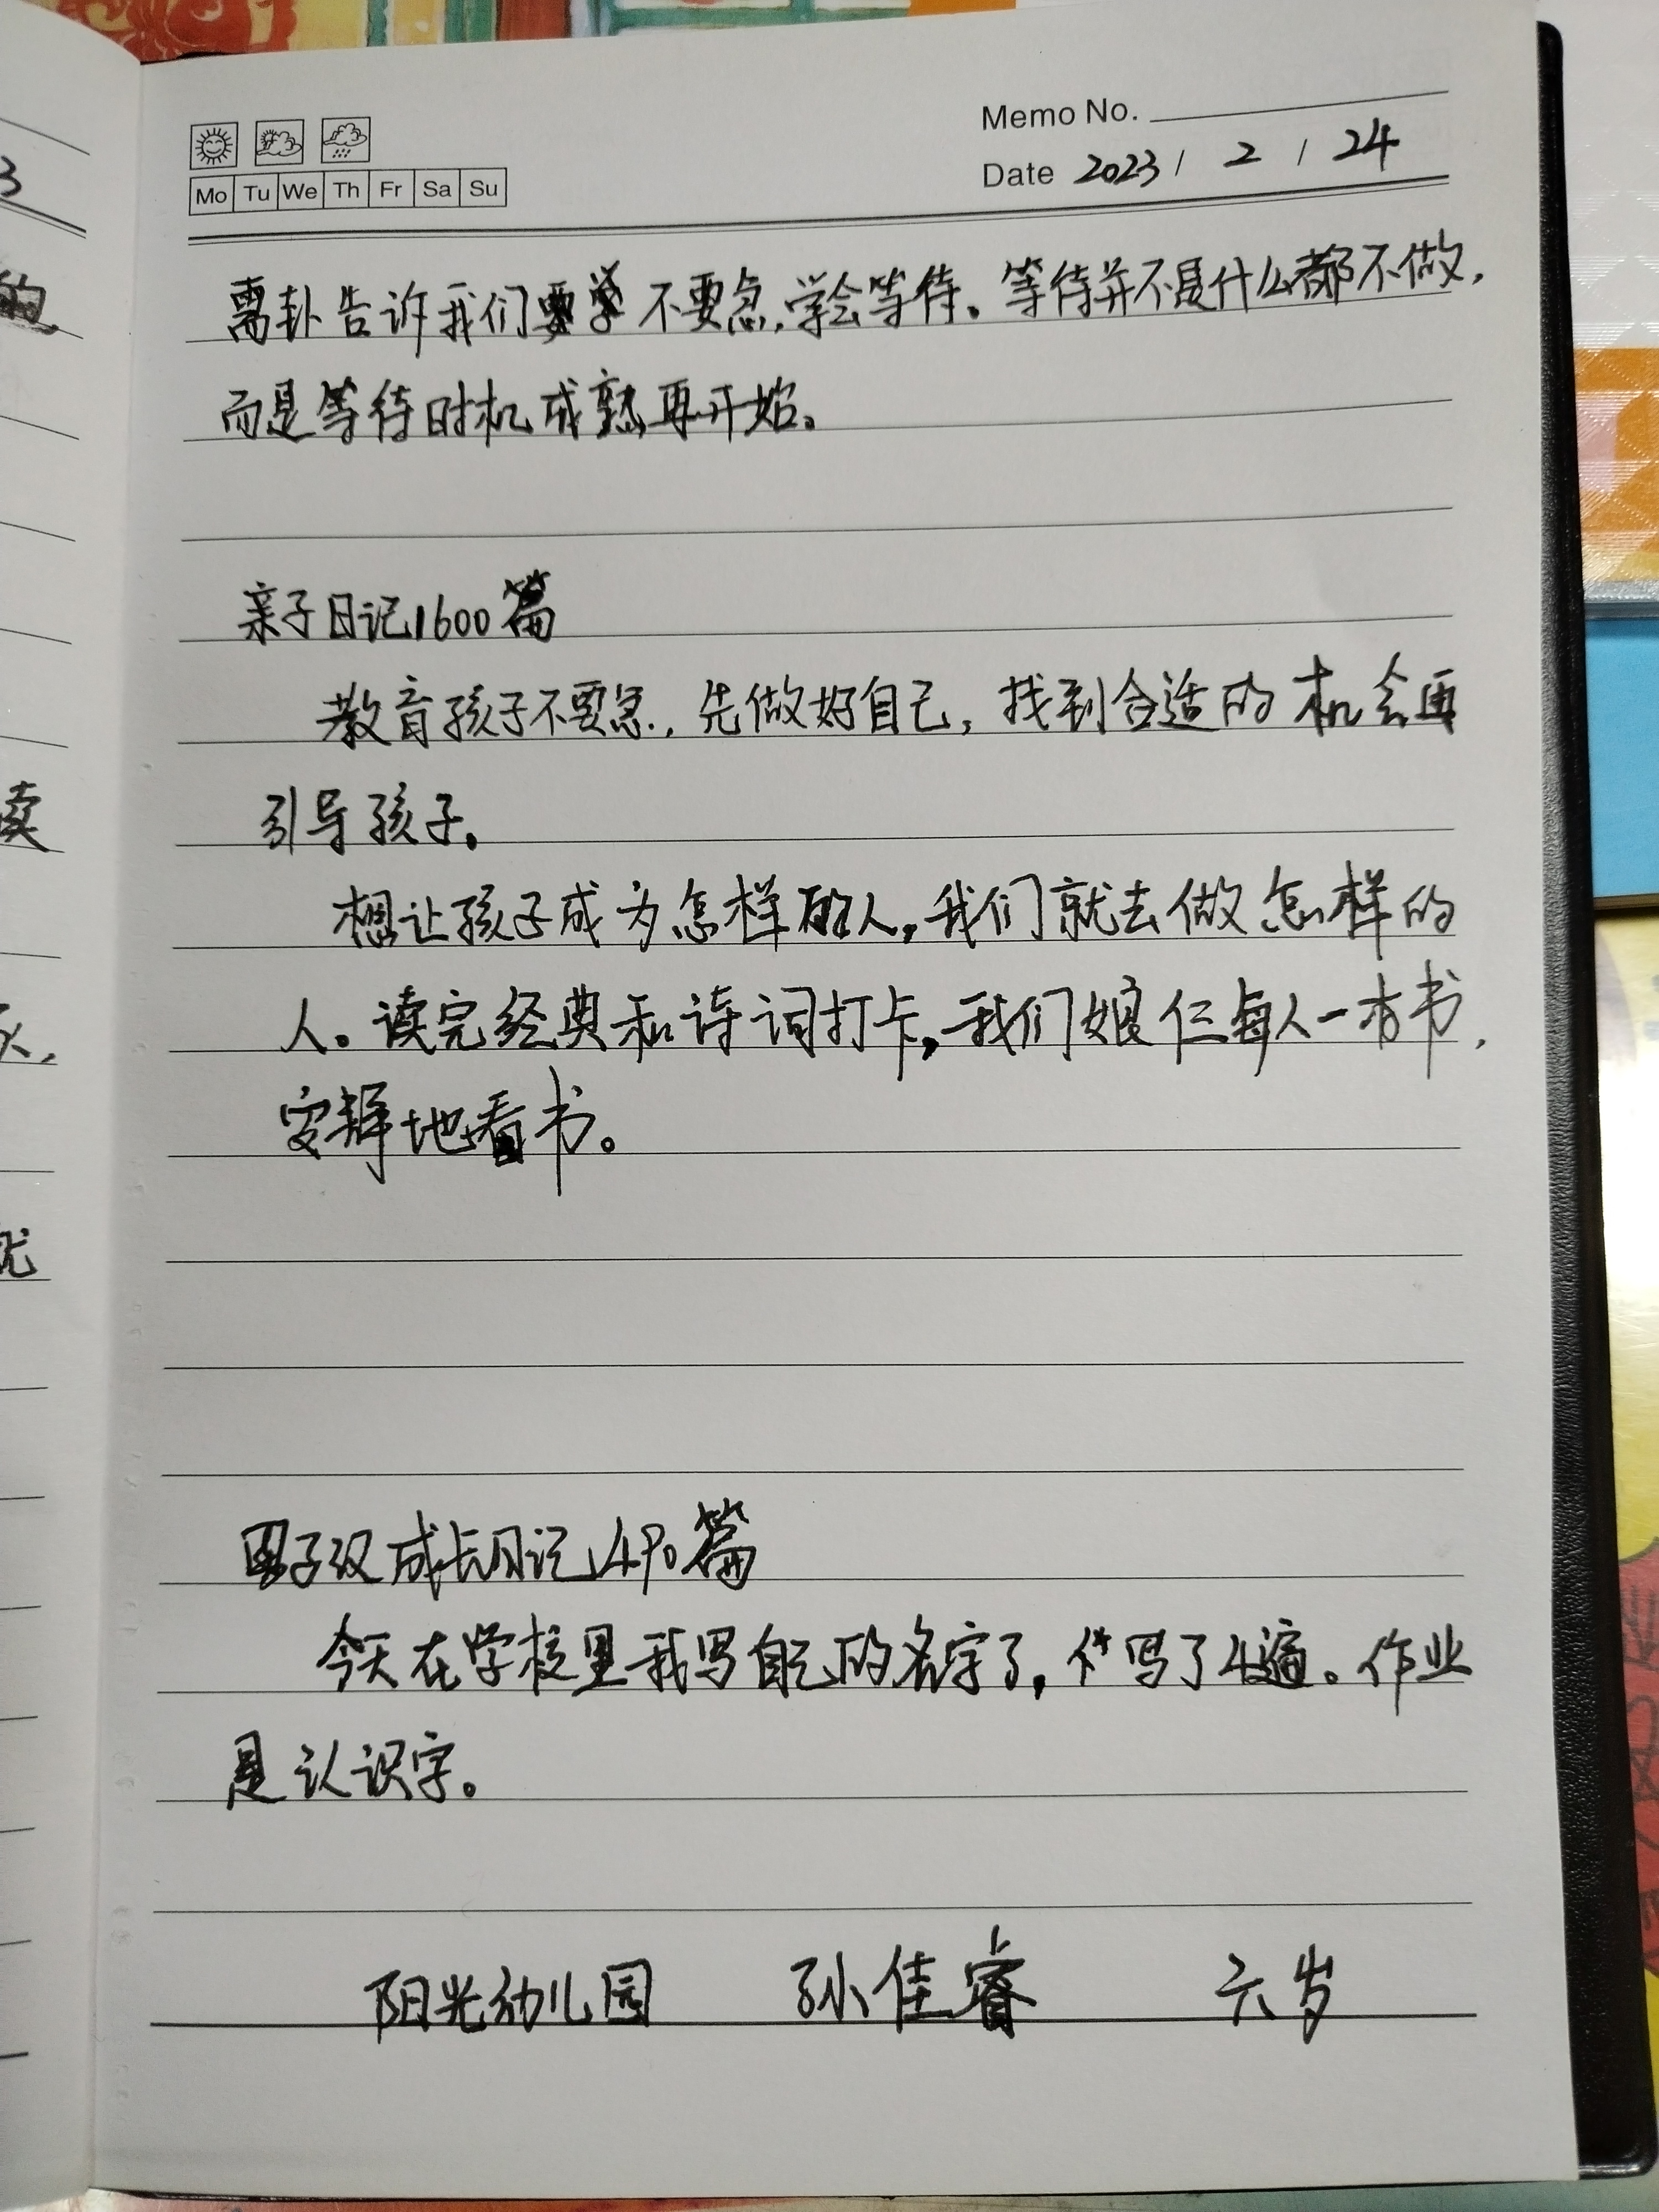 Memo No.
Mo Tu We Th Fr Sa Su
Date 2023 / 2 / 24
需卦告诉我们 不要急,学会等待。等待并不是什么都不做,
而是等待时机成熟再开始。
亲子日记1600篇
教育孩子不要急,先做好自己,找到合适的机会再
引导孩子。
想让孩子成为怎样的人,我们就去做怎样的
人。读完经典和诗词打卡,我们娘仨每人一本书,
安静地看书。
男子汉成长日记490篇
今天在学校里我写自己的名字了,写了4遍。作业
是认识字。
阳光幼儿园 孙佳睿 六岁
3
的
读
就